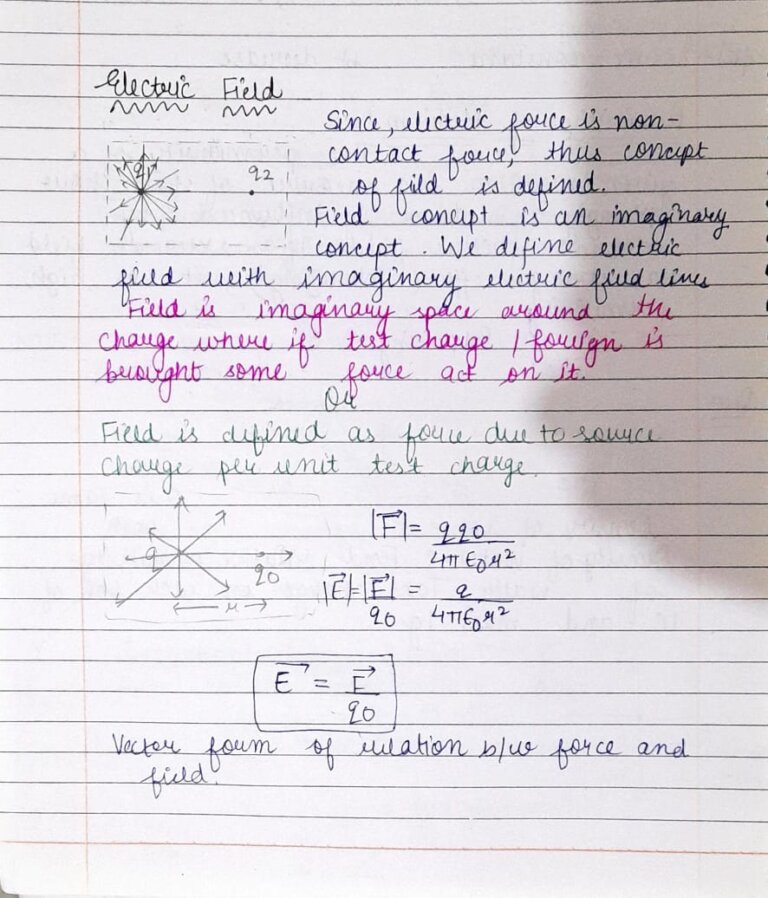 Electric Field
q1
q2
Since, electric force is non-
contact force, thus concept
of fild is defined.
Field concept is an imaginary
concept. We define electric
field with imaginary electric field lines
Field is imaginary space around the
charge where if test charge / foreign is
brought some force act on it.
Or
Field is defined as force due to source
charge per unit test charge.
q
q0
r
|F⃗| = qq0 / 4πϵ0r²
|E⃗| = |F⃗| / q0 = q / 4πϵ0r²
E⃗ = F⃗ / q0
Vector form of relation b/w force and
field.